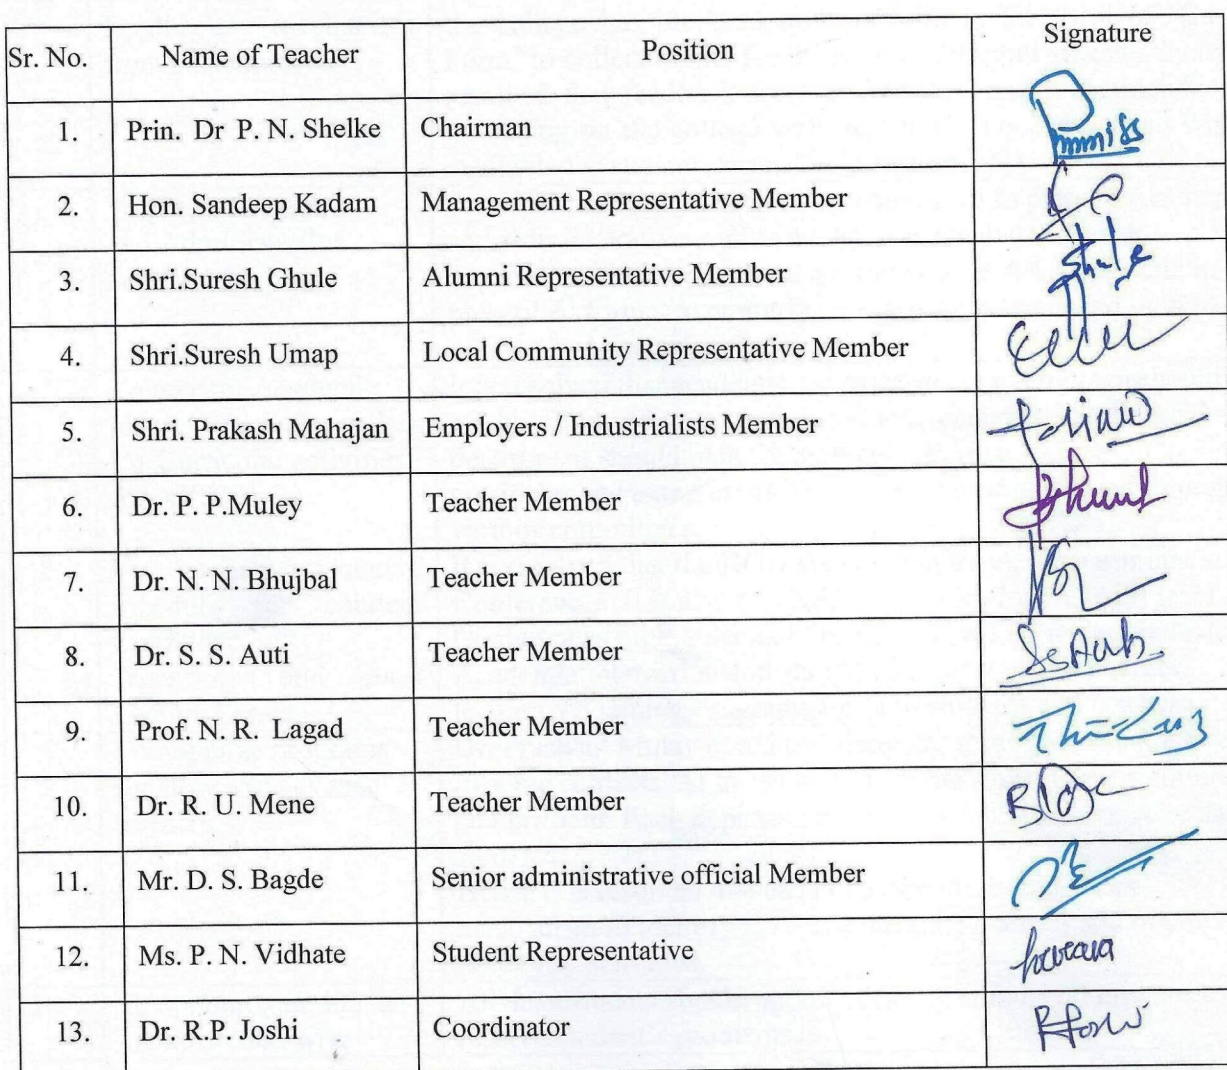 Sr. No. Name of Teacher Position Signature
1. Prin. Dr P. N. Shelke Chairman
2. Hon. Sandeep Kadam Management Representative Member
3. Shri.Suresh Ghule Alumni Representative Member
4. Shri.Suresh Umap Local Community Representative Member
5. Shri. Prakash Mahajan Employers / Industrialists Member
6. Dr. P. P.Muley Teacher Member
7. Dr. N. N. Bhujbal Teacher Member
8. Dr. S. S. Auti Teacher Member
9. Prof. N. R. Lagad Teacher Member
10. Dr. R. U. Mene Teacher Member
11. Mr. D. S. Bagde Senior administrative official Member
12. Ms. P. N. Vidhate Student Representative
13. Dr. R.P. Joshi Coordinator